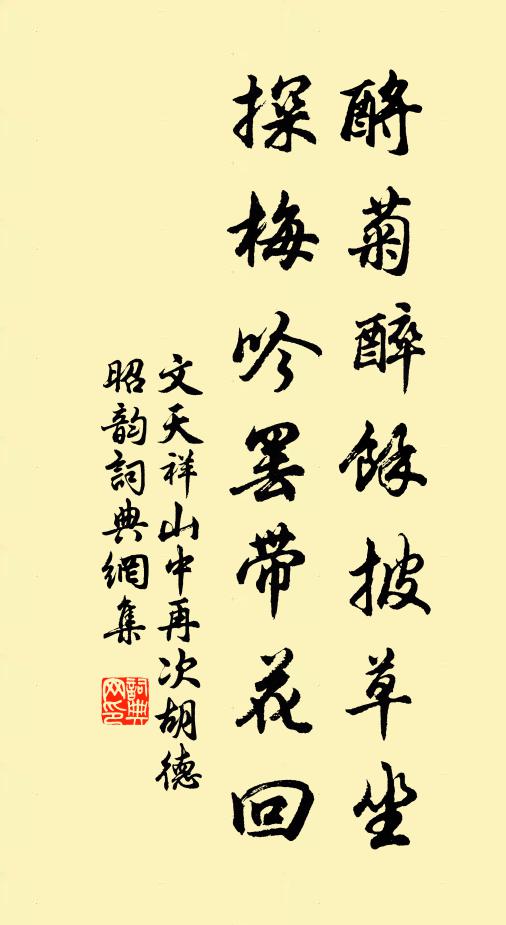 酹菊醉餘披草坐
探梅吟罢带花回
文天祥山中再次胡德
昭韵詞典網集
詞典
网印